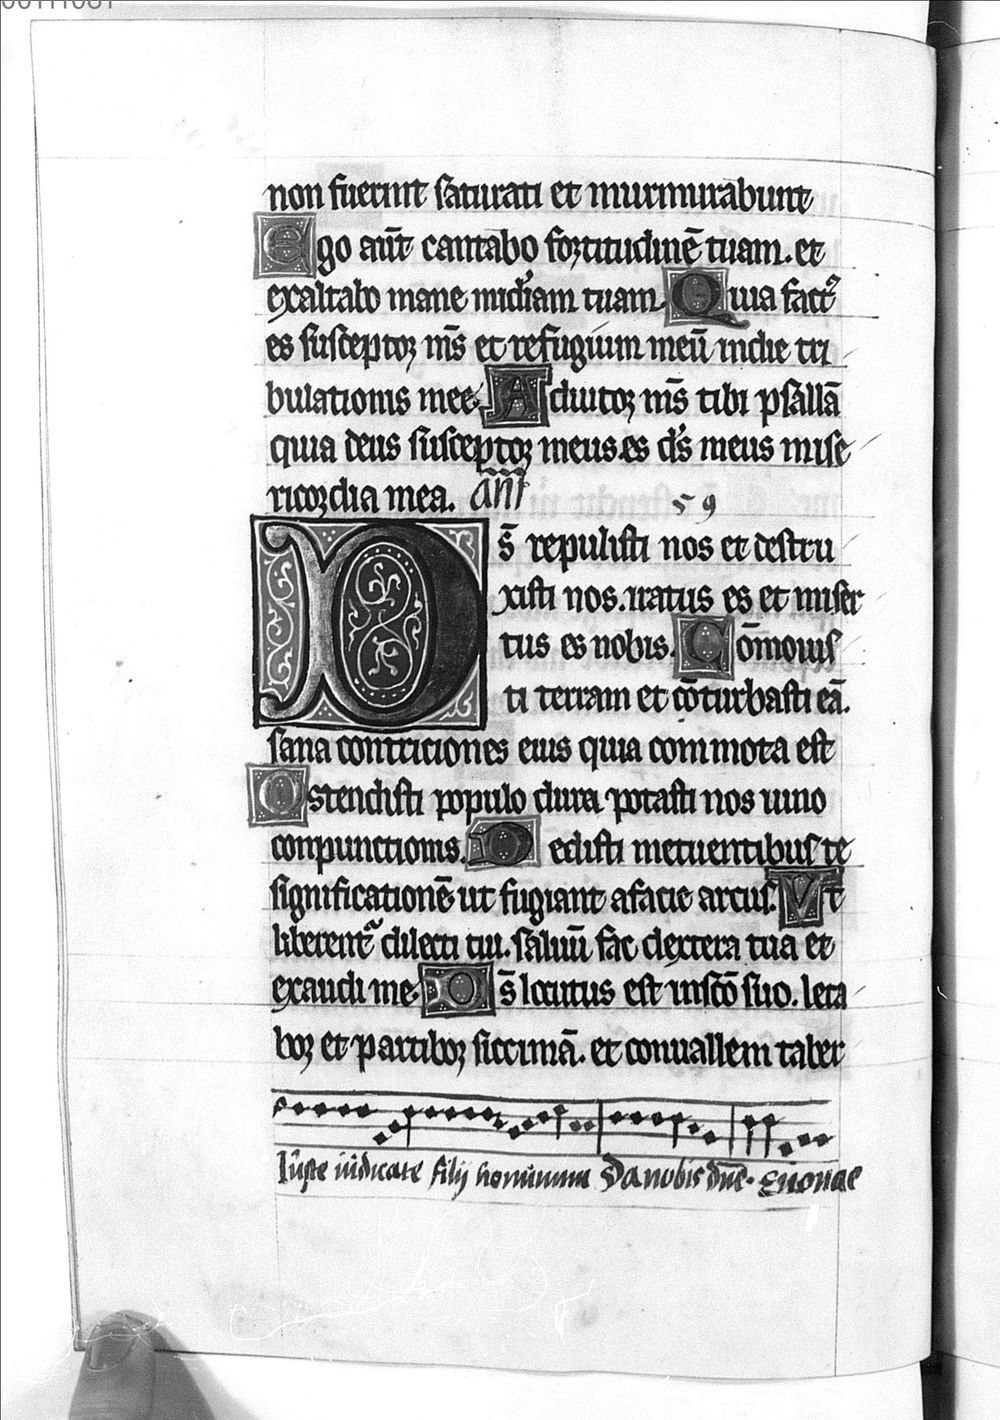 non fuerint saturati et murmurabunt
Ego aut̄ cantabo fortitudinē tuam. et
exaltabo mane mīdiam tuam. Quia fact᷒
es susceptor m̄s et refugium meū indie tri
bulationis mee. Adiutor m̄s tibi psallā
quia deus susceptor meus es d̄s meus mise
ricordia mea. an̄
59
D̄s repulisti nos et destru
xisti nos. iratus es et miser
tus es nobis. Cōmouis
ti terram et cōturbasti eā.
sana contriciones eius quia commota est
Ostendisti populo dura potasti nos uino
conpunctionis. Dedisti metuentibus te
significationē ut fugiant afacie arcus. Vt
liberent᷑ dilecti tui. saluū fac dextera tua et
exaudi me. D̄s locutus est insc̄o suo. leta
bor et partibor siccimā. et conuallem taber
Iuste iudicate filij hominum Da nobis dn̄e. Euouae